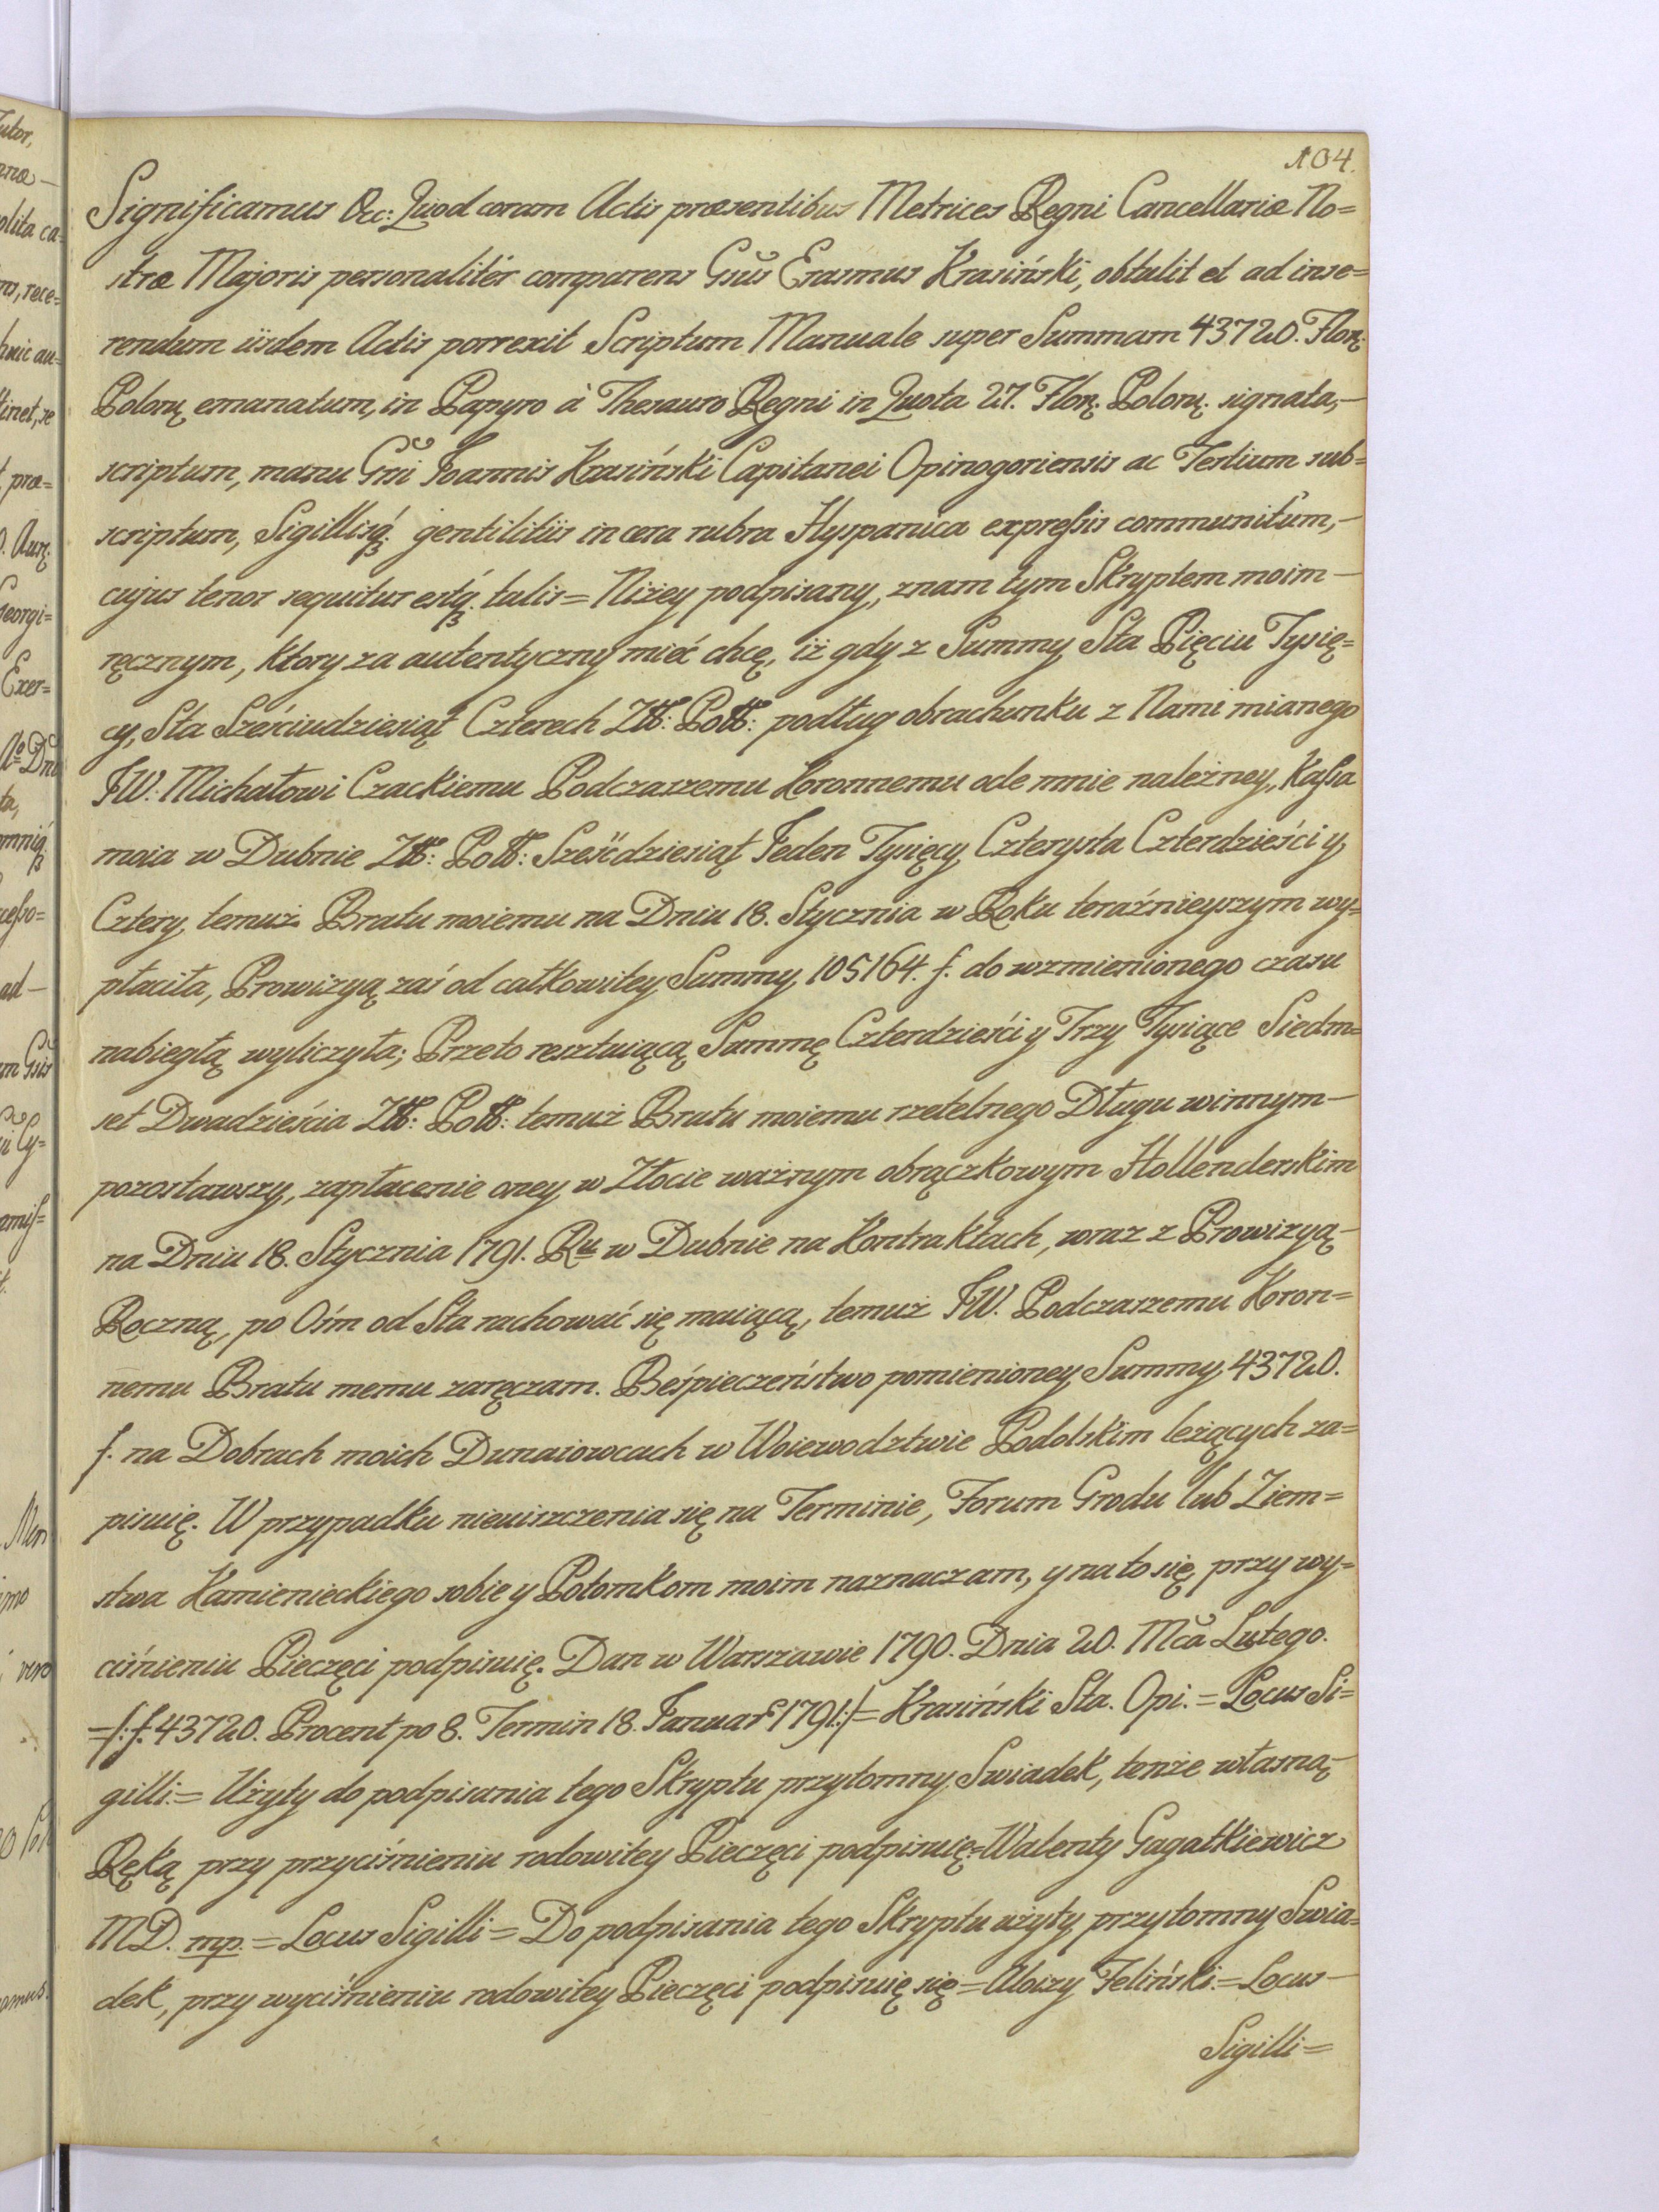 104.
Significamus &cc: Quod coram Actis præsentibus Metrices Regni Cancellariæ No=
stræ Majoris personalitèr comparens Gsus Erasmus Krasiński, obtulit et ad inse=
rendum iisdem Actis porrexit Scriptum Manuale super Summam 43720. Flor:
Polon: emanatum, in Papyro à Thesauro Regni in Quota 27. Flor: Polon: signata,—
scriptum, manu Gsi Ioannis Krasiński Capitanei Opinogoriensis ac Testium sub=
scriptum, Sigillisq́3 gentilitiis in cera rubra Hyspanica expreſsis communitum,—
cujus tenor sequitur estq́3 talis = Niżey podpisany, znam tym Skryptem moim—
ręcznym, ktory za autentyczny mieć chcę, iż gdy z Summy Sta Pięciu Tysię=
cy, Sta Sześciudziesiąt Czterech Złł: Poll: podług obrachunku z Nami mianego
JW: Michałowi Czackiemu Podczaszemu Koronnemu ode mnie należney, Kaſsa
moia w Dubnie Złł: Poll: Sześćdziesiąt Jeden Tysięcy Czterysta Czterdzieści y
Cztery, temuż Bratu moiemu na Dniu 18. Stycznia w Roku teraźnieyszym wy=
płaciła, Prowizyą zaś od całkowitey Summy 105164. f. do wzmienionego czasu
nabiegłą wyliczyła; Przeto resztuiącą Summę Czterdzieści y Trzy Tysiące Siedm=
set Dwadzieścia Złł: Poll: temuż Bratu moiemu rzetelnego Długu winnym—
pozostawszy, zapłacenie oney w Złocie ważnym obrączkowym Hollenderskim
na Dniu 18. Stycznia 1791. Ru w Dubnie na Kontraktach, wraz z Prowizyą—
Roczną, po Ośm od Sta rachować się maiącą, temuż JW. Podczaszemu Kron=
nemu Bratu memu zaręczam. Beśpieczeństwo pomienioney Summy 43720.
f. na Dobrach moich Dunaiowcach w Woiewodztwie Podolskim leżących za=
pisuię. W przypadku nieuiszczenia się na Terminie, Forum Grodu lub Ziem=
stwa Kamienieckiego sobie y Potomkom moim naznaczam, y na to się, przy wy=
ciśnieniu Pieczęci podpisuię. Dan w Warszawie 1790. Dnia 20. Mca Lutego.
=/: f. 43720. Procent po 8. Termin 18. Januar 1791:/= Krasiński Sta. Opi. = Locus Si=
gilli: = Użyty do podpisania tego Skryptu przytomny Swiadek, tenże własną—
Ręką przy przyciśnieniu rodowitey Pieczęci podpisuię = Walenty Gagatkiewicz
MD. mp. = Locus Sigilli = Do podpisania tego Skryptu użyty przytomny Swia=
dek, przy wyciśnieniu rodowitey Pieczęci podpisuię się = Aloizy Feliński. = Locus—
Sigilli =